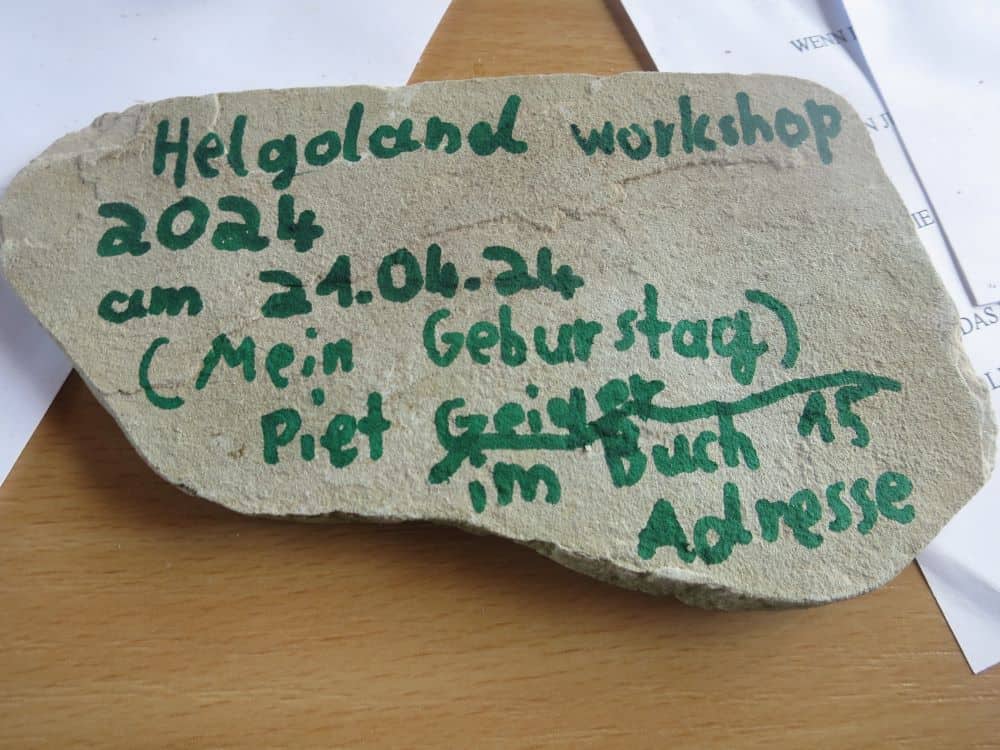 Helgoland workshop
2024
am 21.04.24
(Mein Geburstag)
Piet Geider
im Buch 15
Adresse
WENN
N J
IE
DAS